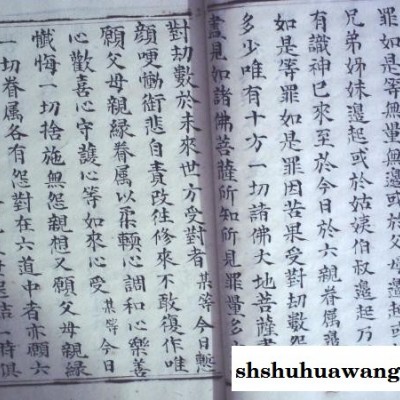 罪如是等無量無邊或於父母
兄弟姊妹邊起或於姑姨伯叔邊起乃
有識神已來至於今日於六親眷屬邊
如是等罪如是罪因苦果受對劫數怨
多少唯有十方一切諸佛大地菩薩盡
盡見如諸佛菩薩所知所見罪量多
對劫數於未來世方受對者某等今日慙
顏哽慟銜悲自責改往修來不敢復作唯
願父母親緣眷屬以柔輭心調和心樂善
心歡喜心守護心等如來心受某等今日
懺悔一切捨施無怨親想又願父母親緣
一切眷屬各有怨對在六道中者亦願六
一時俱
shshuhuawang